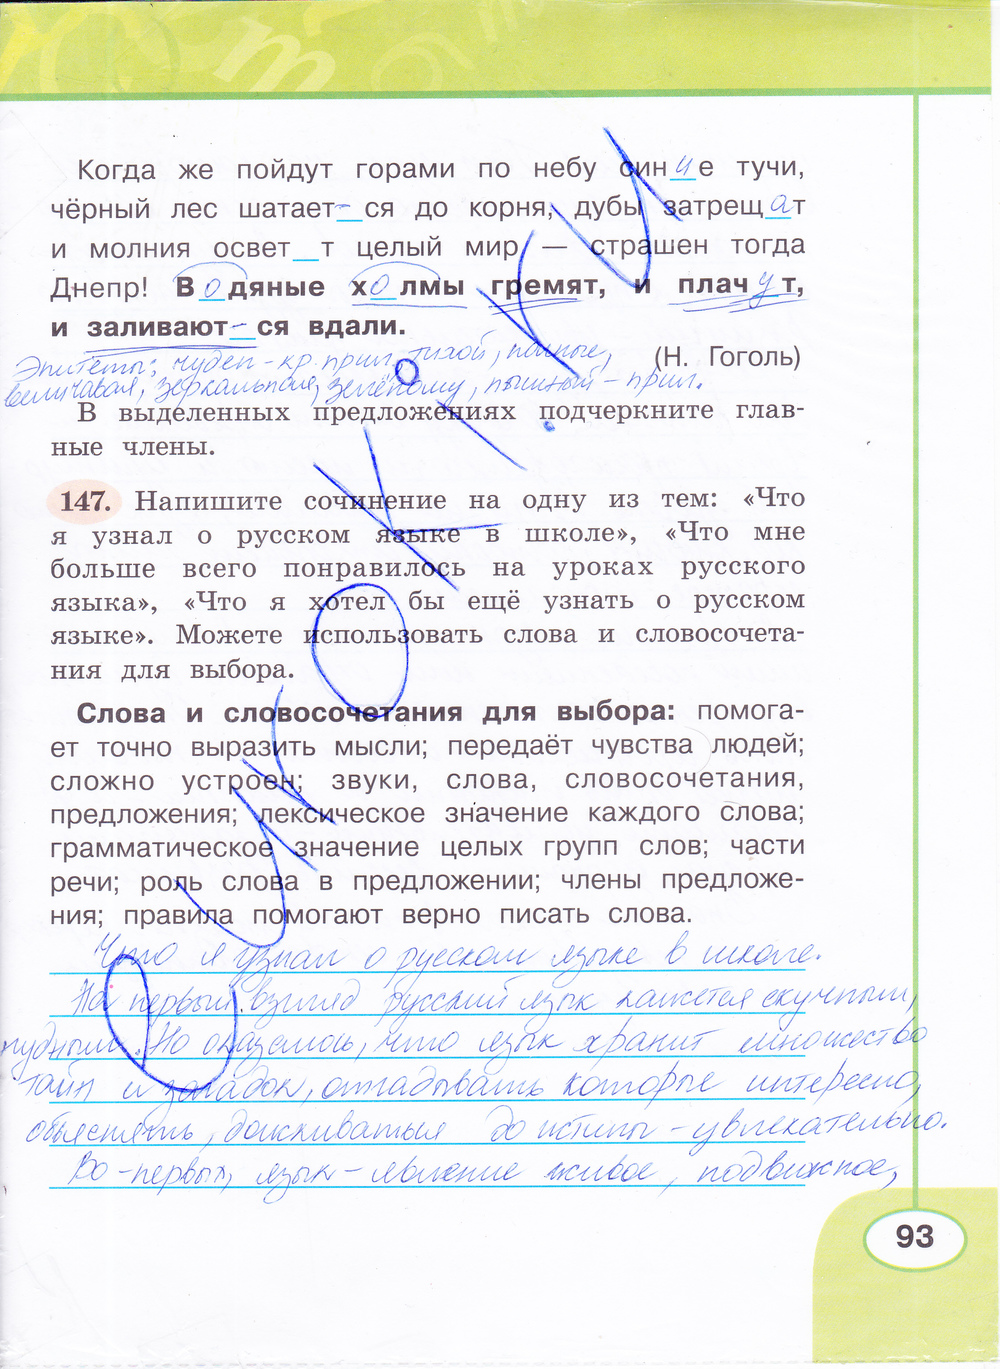 Когда же пойдут горами по небу синие тучи,
чёрный лес шатает-ся до корня, дубы затрещат
и молния освет_т целый мир — страшен тогда
Днепр! Водяные холмы гремят, и плачут,
и заливают-ся вдали.
Эпитеты: чуден - кр. прил., тихой, полные,
(Н. Гоголь)
величавая, зеркальная, зелёному, пышный - прил.
В выделенных предложениях подчеркните глав-
ные члены.
147. Напишите сочинение на одну из тем: «Что
я узнал о русском языке в школе», «Что мне
больше всего понравилось на уроках русского
языка», «Что я хотел бы ещё узнать о русском
языке». Можете использовать слова и словосочета-
ния для выбора.
Слова и словосочетания для выбора: помога-
ет точно выразить мысли; передаёт чувства людей;
сложно устроен; звуки, слова, словосочетания,
предложения; лексическое значение каждого слова;
грамматическое значение целых групп слов; части
речи; роль слова в предложении; члены предложе-
ния; правила помогают верно писать слова.
Что я узнал о русском языке в школе.
На первый взгляд русский язык кажется скучным,
нудным. Но оказалось, что язык хранит множество
тайн и загадок, отгадывать которые интересно,
объяснять, доискиваться до истины - увлекательно.
Во-первых, язык - явление живое, подвижное,
93